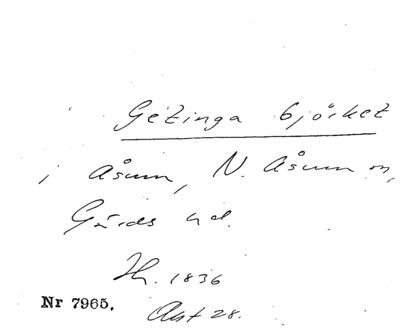 Getinga björket
i Åsum, N. Åsum sn,
Gärds hd.
Th. 1836
Nr 7965.
Akt 28.